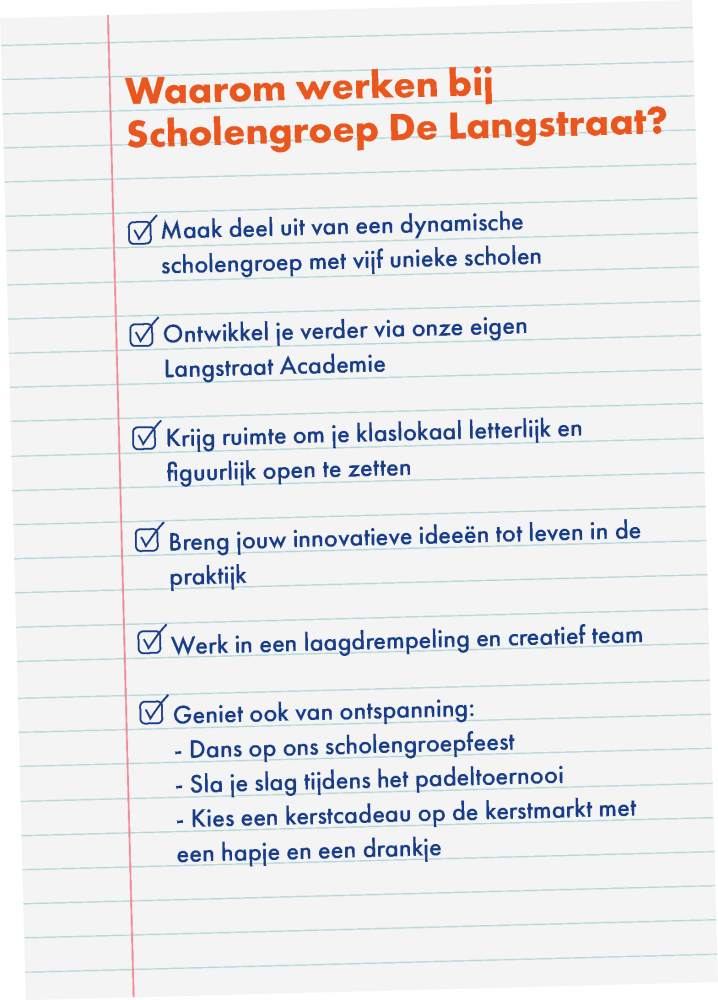 Waarom werken bij
Scholengroep De Langstraat?
Maak deel uit van een dynamische
scholengroep met vijf unieke scholen
Ontwikkel je verder via onze eigen
Langstraat Academie
Krijg ruimte om je klaslokaal letterlijk en
figuurlijk open te zetten
Breng jouw innovatieve ideeën tot leven in de
praktijk
Werk in een laagdrempeling en creatief team
Geniet ook van ontspanning:
- Dans op ons scholengroepfeest
- Sla je slag tijdens het padeltoernooi
- Kies een kerstcadeau op de kerstmarkt met
een hapje en een drankje